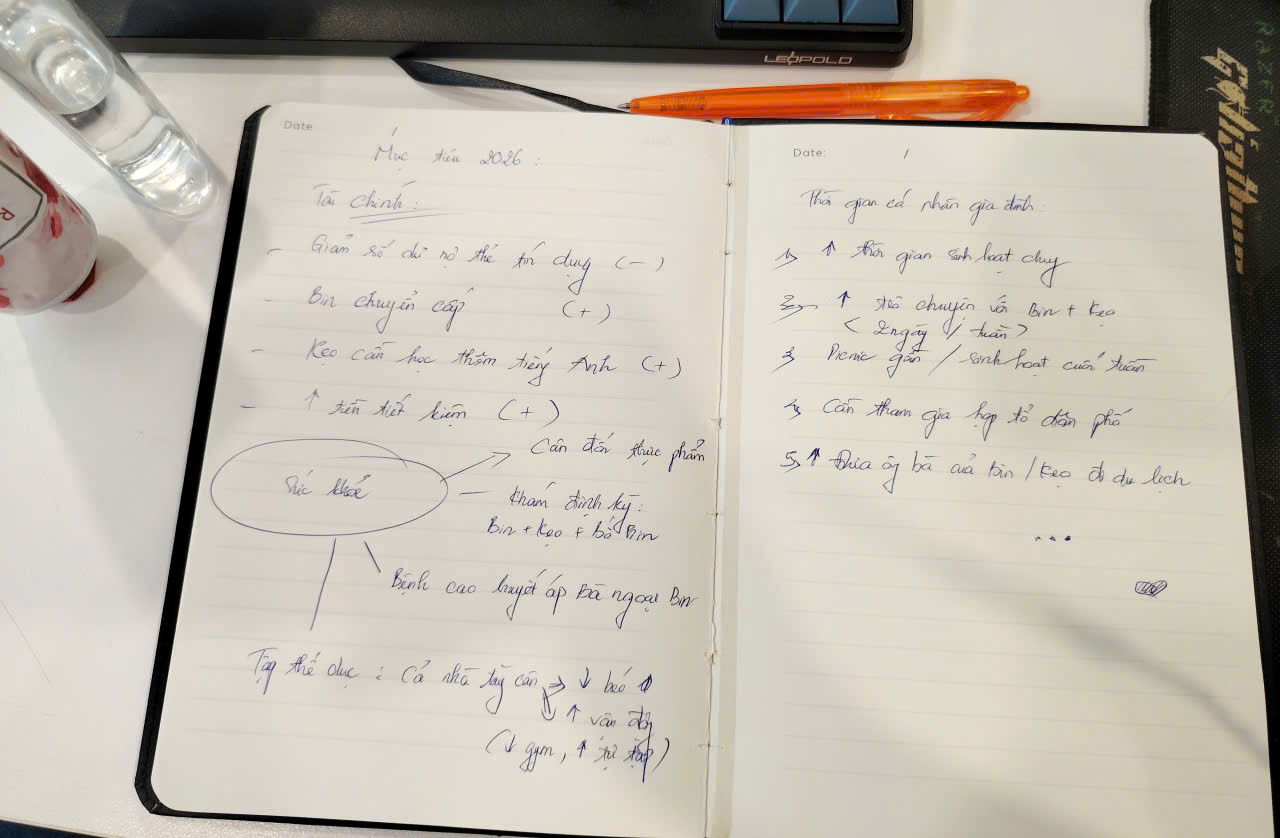 LEOPOLD
RAZER
Date
Mục tiêu 2026 :
Tài chính :
- Giảm số dư nợ thẻ tín dụng (-)
- Bin chuyển cấp (+)
- Kẹo cần học thêm tiếng Anh (+)
- ↑ tiền tiết kiệm (+)
Sức khoẻ
Cân đối thực phẩm
Khám định kỳ :
Bin + Kẹo + bố Bin
Bệnh cao huyết áp Bà ngoại Bin
Tập thể dục : Cả nhà tăng cân → ↓ béo
↑ vận động
(↓ gym, ↑ tự tập)
Date: /
Thời gian cá nhân gia đình :
1, ↑ thời gian sinh hoạt chung
2, ↑ trò chuyện với Bin + Kẹo
(2 ngày / tuần)
3, Picnic gần / sinh hoạt cuối tuần
4, Cần tham gia họp tổ dân phố
5, ↑ Đưa ông bà của Bin / Kẹo đi du lịch
...